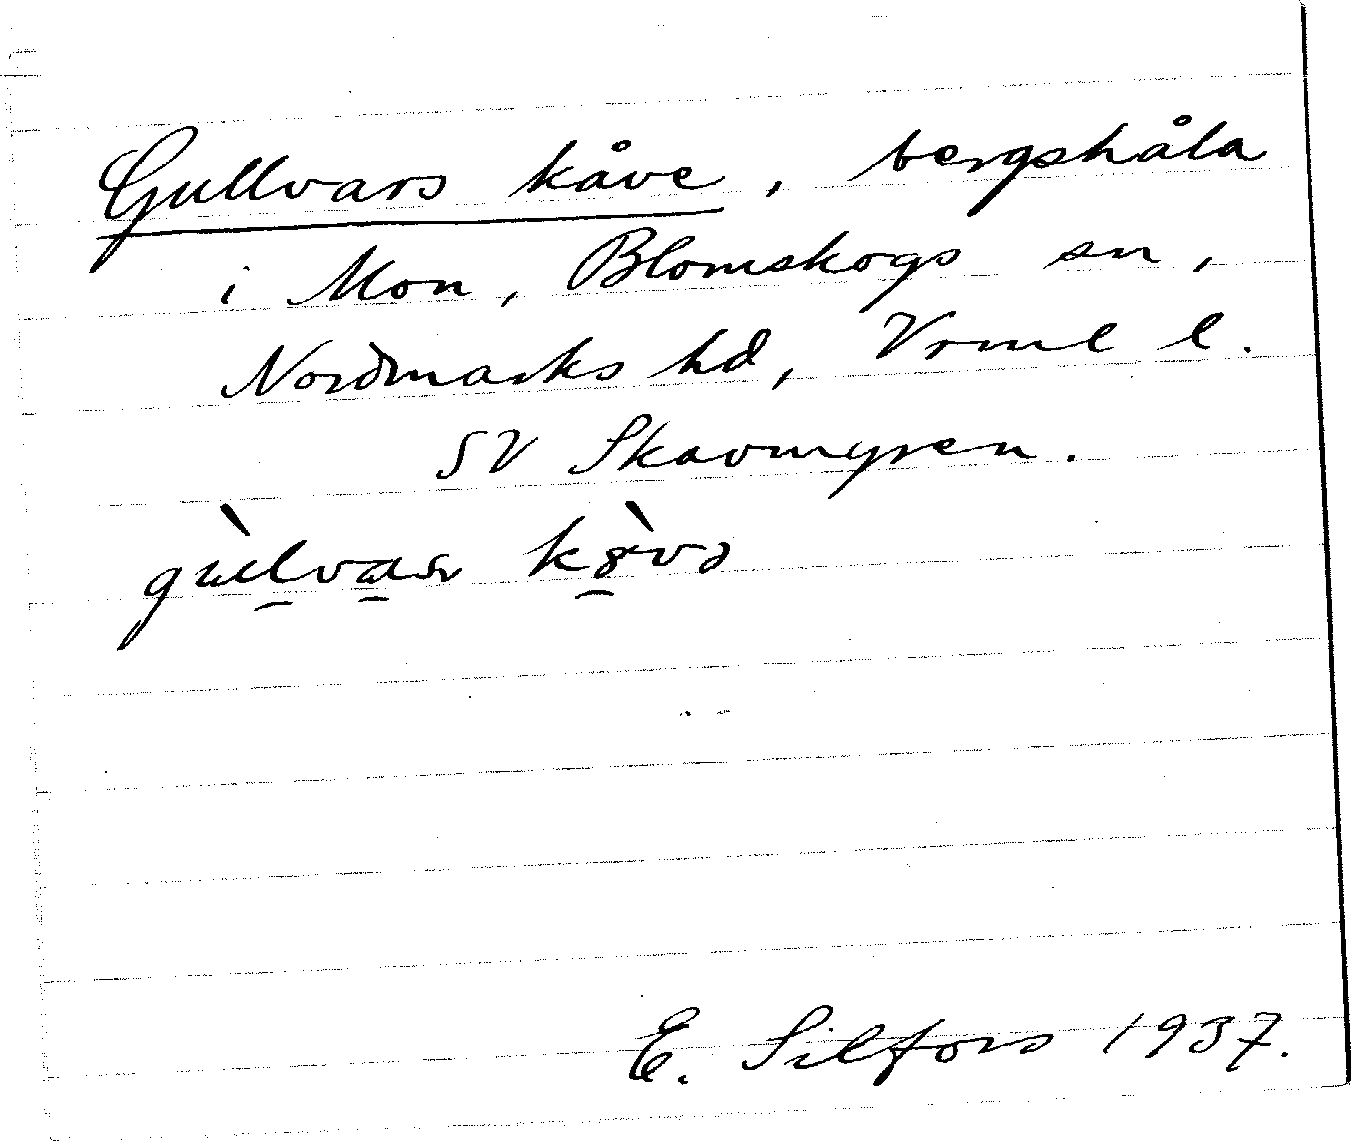 Gullvars kåve, bergshåla
i Mon, Blomskogs sn,
Nordmarks hd, Vrml l.
SV Skavmyren.
E. Silfors 1937.